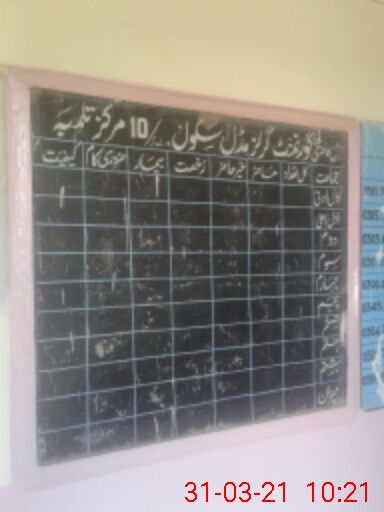 گورنمنٹ گرلز مڈل سکول 10/ مرکز تلمبہ
جماعت کل تعداد حاضر غیر حاضر رخصت بیمار ضروری کام کیفیت
اول ادنیٰ
اول اعلیٰ
دوم
سوم
چہارم
پنجم
ششم
ہفتم
ہشتم
میزان
31-03-21 10:21